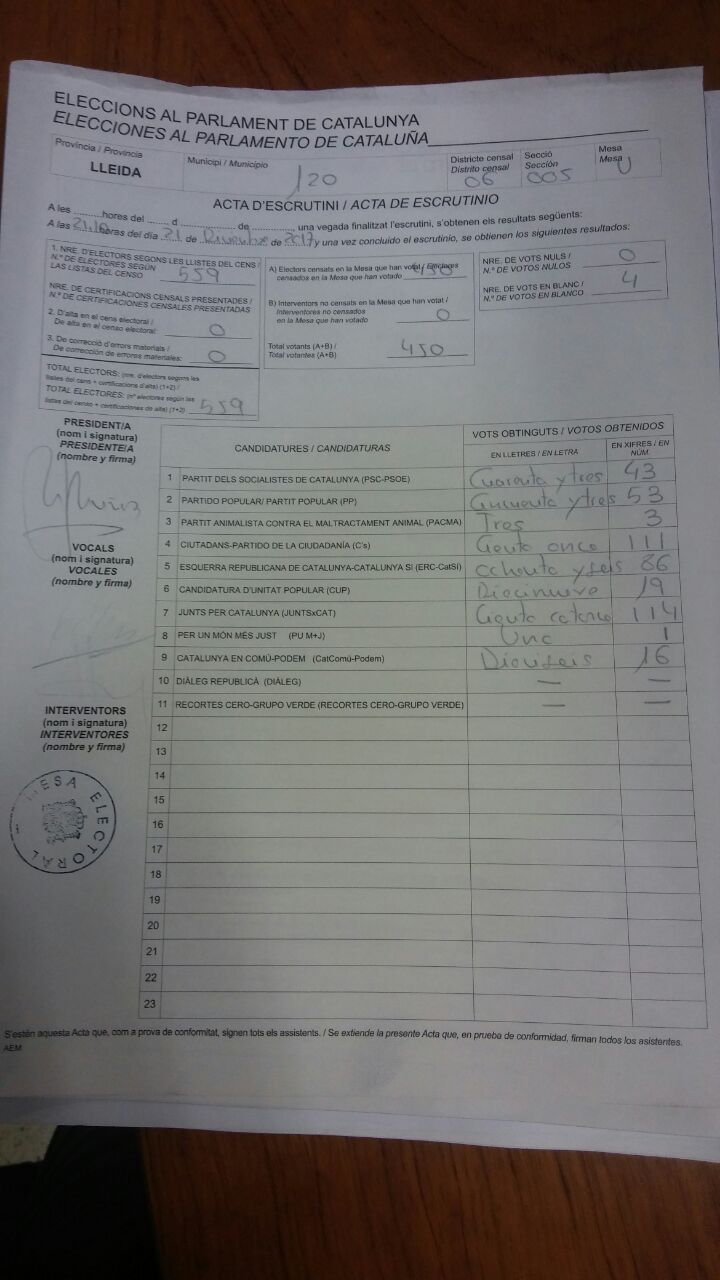 ELECCIONS AL PARLAMENT DE CATALUNYA
ELECCIONES AL PARLAMENTO DE CATALUÑA
Província / Provincia
LLEIDA
Municipi / Municipio
120
Districte censal
Distrito censal
06
Secció
Sección
005
Mesa
Mesa
U
ACTA D'ESCRUTINI / ACTA DE ESCRUTINIO
A les ..........hores del ...... d ........................ de .............., una vegada finalitzat l'escrutini, s'obtenen els resultats següents:
A las horas del día 21 de Diciembre de 2017 y una vez concluido el escrutinio, se obtienen los siguientes resultados:
1. NRE. D'ELECTORS SEGONS LES LLISTES DEL CENS /
N.º DE ELECTORES SEGÚN
LAS LISTAS DEL CENSO
559
NRE. DE CERTIFICACIONS CENSALS PRESENTADES /
N.º DE CERTIFICACIONES CENSALES PRESENTADAS
2. D'alta en el cens electoral /
De alta en el censo electoral:
0
3. De correcció d'errors materials /
De corrección de errores materiales:
0
TOTAL ELECTORS: (nre. d'electors segons les
llistes del cens + certificacions d'alta) (1+2) /
TOTAL ELECTORES: (nº electores según las
listas del censo + certificaciones de alta) (1+2)
559
A) Electors censats en la Mesa que han votat / Electores
censados en la Mesa que han votado
450
B) Interventors no censats en la Mesa que han votat /
Interventores no censados
en la Mesa que han votado
0
Total votants (A+B) /
Total votantes (A+B)
450
NRE. DE VOTS NULS /
N.º DE VOTOS NULOS
0
NRE. DE VOTS EN BLANC /
N.º DE VOTOS EN BLANCO
4
PRESIDENT/A
(nom i signatura)
PRESIDENTE/A
(nombre y firma)
VOCALS
(nom i signatura)
VOCALES
(nombre y firma)
INTERVENTORS
(nom i signatura)
INTERVENTORES
(nombre y firma)
MESA ELECTORAL
CANDIDATURES / CANDIDATURAS
VOTS OBTINGUTS / VOTOS OBTENIDOS
EN LLETRES / EN LETRA
EN XIFRES / EN NÚM.
1 PARTIT DELS SOCIALISTES DE CATALUNYA (PSC-PSOE) Cuarenta y tres 43
2 PARTIDO POPULAR/ PARTIT POPULAR (PP) Cincuenta y tres 53
3 PARTIT ANIMALISTA CONTRA EL MALTRACTAMENT ANIMAL (PACMA) Tres 3
4 CIUTADANS-PARTIDO DE LA CIUDADANÍA (C's) Ciento once 111
5 ESQUERRA REPUBLICANA DE CATALUNYA-CATALUNYA SÍ (ERC-CatSí) ochenta y seis 86
6 CANDIDATURA D'UNITAT POPULAR (CUP) Diecinueve 19
7 JUNTS PER CATALUNYA (JUNTSxCAT) Ciento catorce 114
8 PER UN MÓN MÉS JUST (PU M+J) Uno 1
9 CATALUNYA EN COMÚ-PODEM (CatComú-Podem) Dieciseis 16
10 DIÀLEG REPUBLICÀ (DIÀLEG) — —
11 RECORTES CERO-GRUPO VERDE (RECORTES CERO-GRUPO VERDE) — —
12
13
14
15
16
17
18
19
20
21
22
23
S'estén aquesta Acta que, com a prova de conformitat, signen tots els assistents. / Se extiende la presente Acta que, en prueba de conformidad, firman todos los asistentes.
AEM